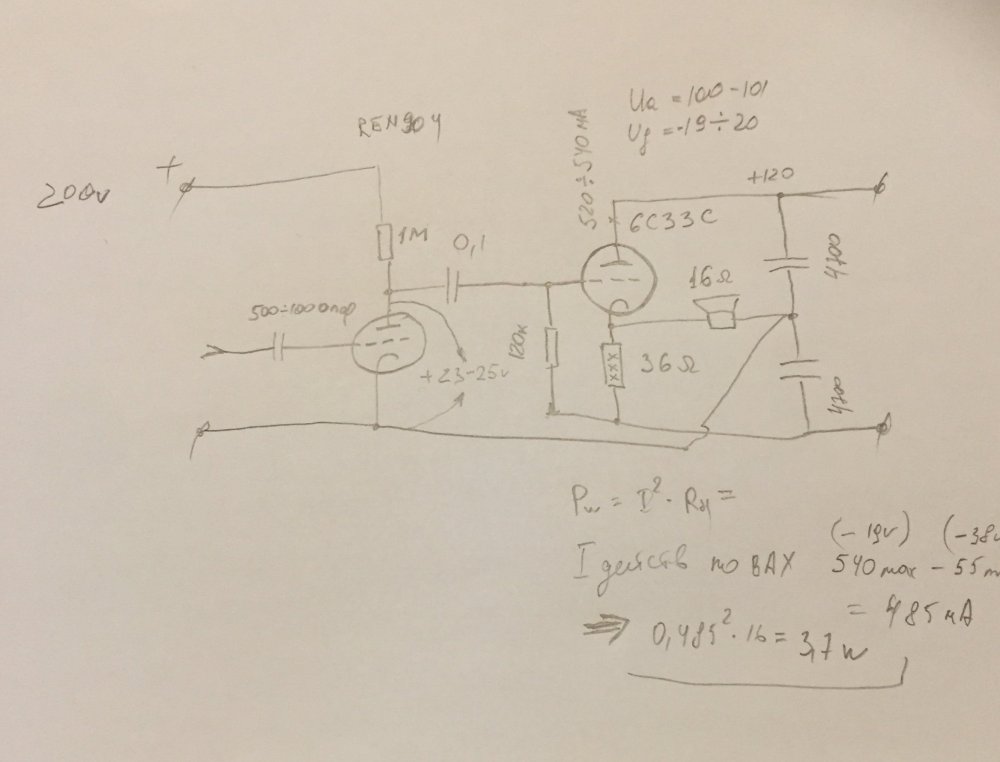 Ua = 100-101
Ug = -19÷20
REN904
520÷540 мА
+120
+
200v
6С33С
1М
0,1
16Ω
4700
500÷1000пф
120к
36Ω
+23-25v
4700
Pw = I² · Rн =
(-19v) (-38v
I действ по ВАХ 540 max - 55 m
= 485 мА
⇒ 0,485² · 16 = 3,7 w